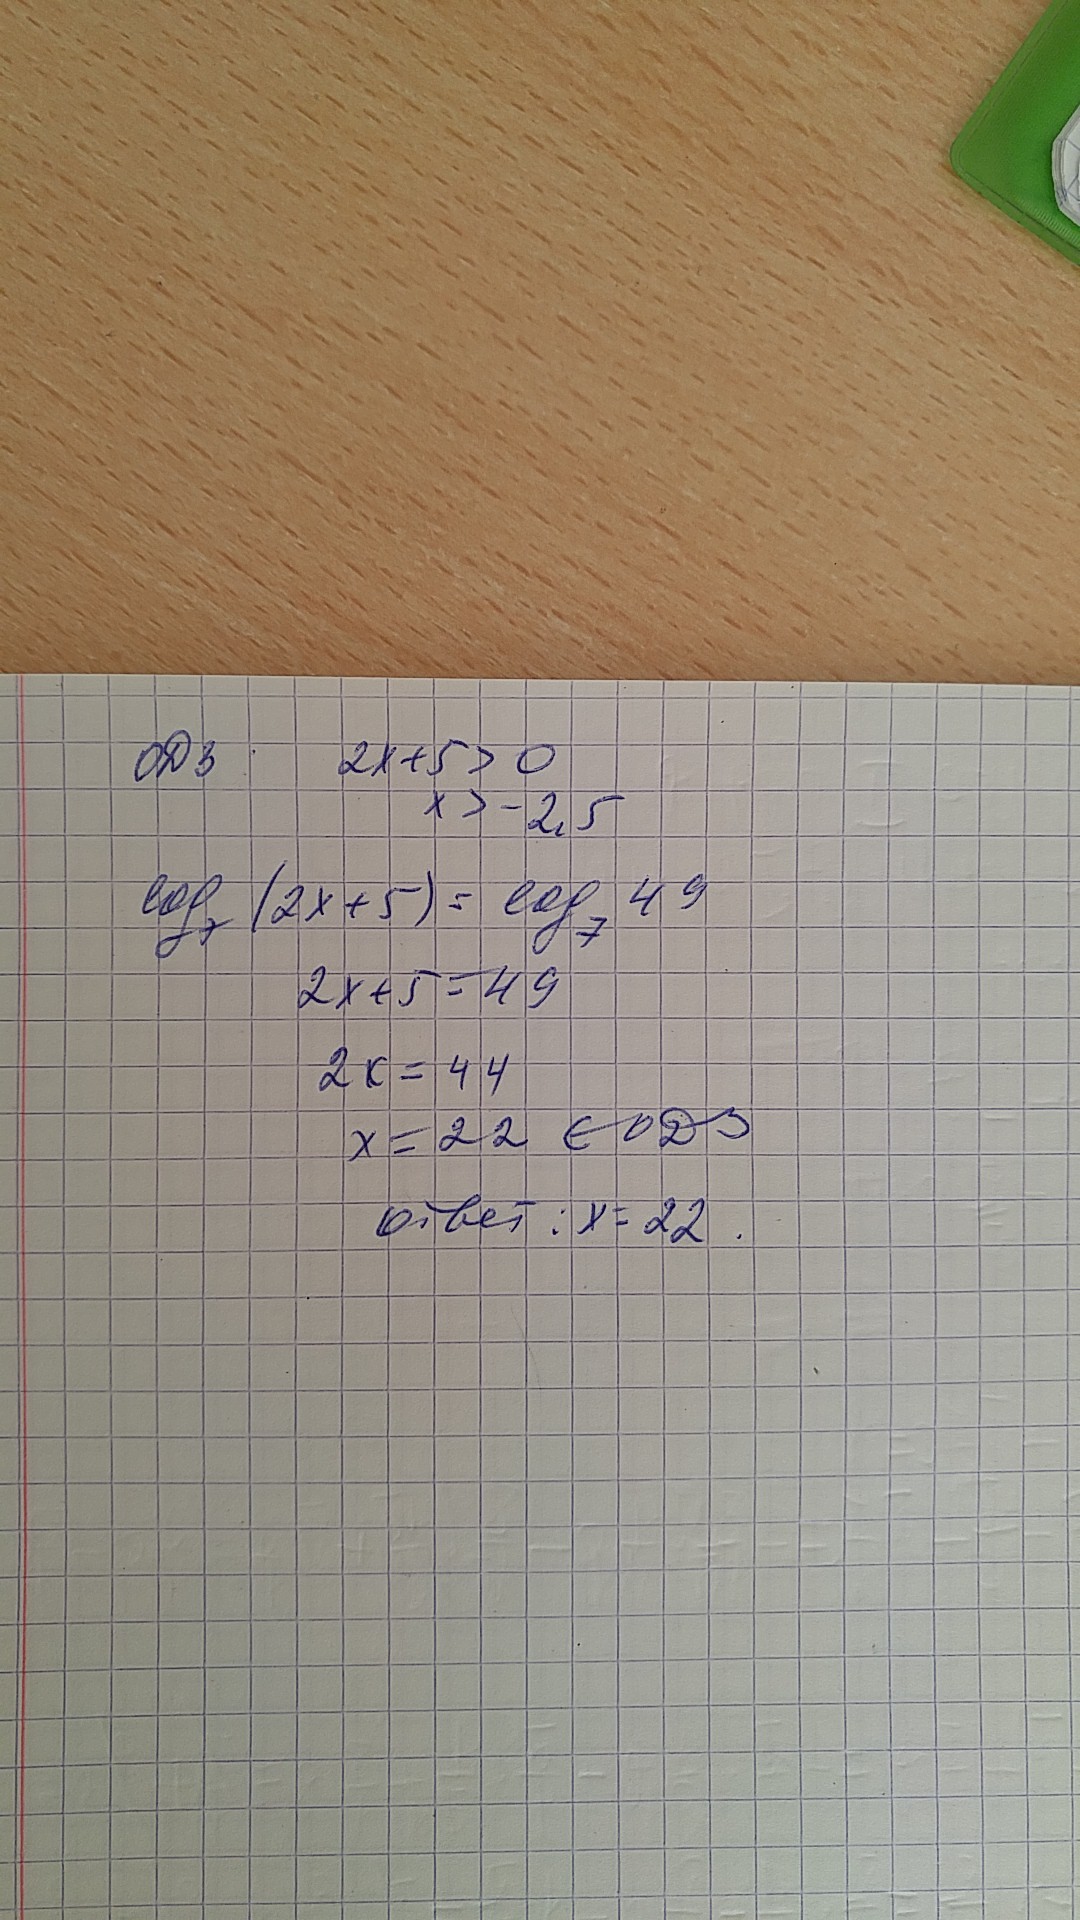 ОДЗ 2x+5>0
x>-2,5
log₇(2x+5)=log₇49
2x+5=49
2x=44
x=22 ∈ ОДЗ
ответ: x=22.